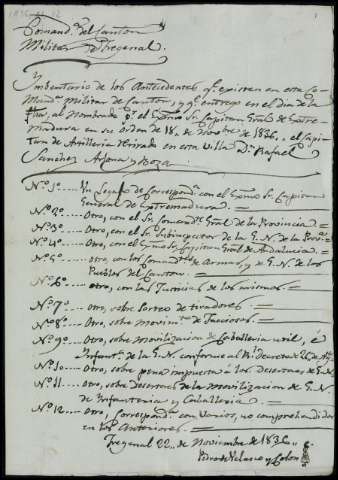 Comand.ª del Canton
Militar de Fregenal.
Ymbentario de los Antecedentes q.e existen en esta Co-
mand.ª militar de Canton, y q.e entrego en el dia de la
fha, al Nombrado p.r el Exmo Sr Capitan Gral de Extre-
madura en su orden de 18,, de Novbre de 1836,, el Capi-
tan de Artilleria retirado en esta villa Dn Rafael
Sanchez Arjona y Boza.
N.o 1o.... Un Legajo de Correspond.ª con el Exmo Sr Capitan
General de Extremadura. =
N.o 2o.... otro, con el Sr Comand.te Gral de la Provincia. =
N.o 3o.... otro, con el Sr Subinspector de la G.N. de la Prov.ª
N.o 4o.... otro, con el Exmo Sr Capitan Gral de Andalucia. =
N.o 5o.... otro, con los Comand.tes de Armas, y de G.N. de los
Pueblos del Canton. =
N.o 6o.... otro, con las Justicias de los mismos. =
N.o 7o.... otro, sobre Sorteo de tiradores. =
N.o 8o.... otro, sobre Movim.tos de Facciosos. =
N.o 9o.... otro, sobre Movilizacion de Caballeria util, é
Infant.ª de la G.N. conforme al Rl Decreto de 26 de Ag.to
N.o 10.... otro, sobre pena impuesta á los Desertores de G.N.
N.o 11.... otro, sobre desertores de la Movilizacion de G.N.
de Infanteria y Caballeria. =
N.o 12.... otro, Correspond.ª con Varios, no comprehendidos
en los Anteriores. =
Fregenal 22,, de Noviembre de 1836.,,
Pedro de Velasco y Colon